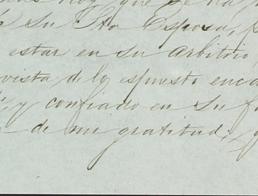 su Sta Esposa, p
estar en su arbitrio
vista de lo espuesto enca
y confiado en su f
de mi gratitud,